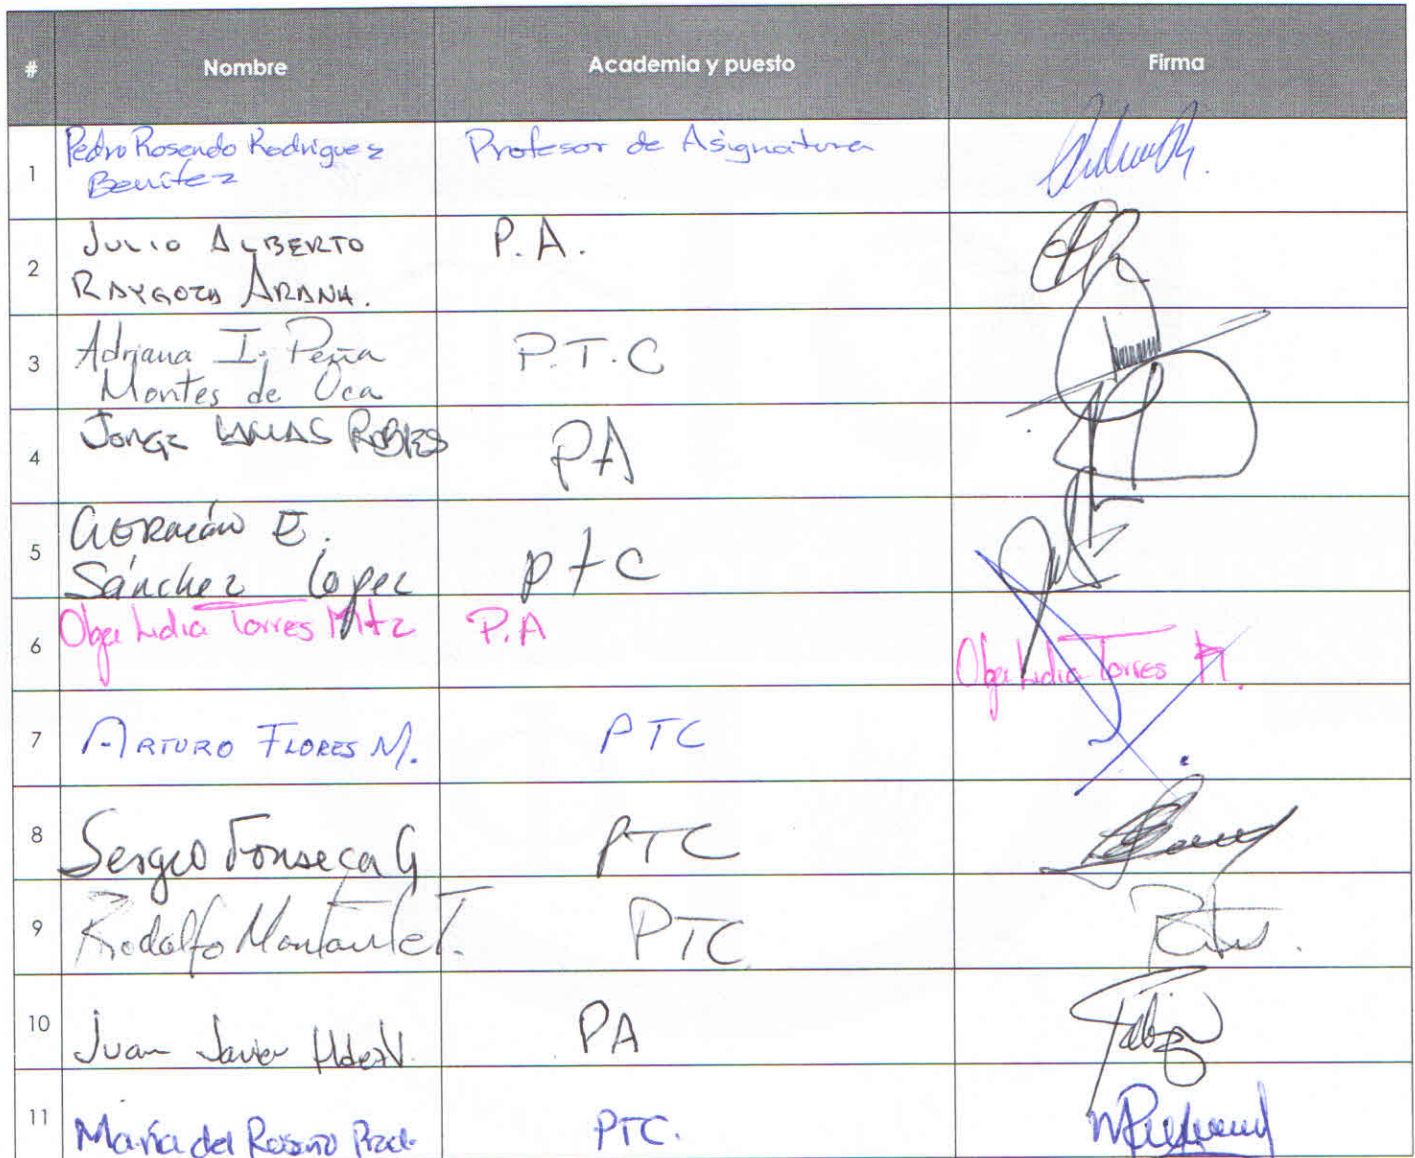 # Nombre Academia y puesto Firma
1 Pedro Rosendo Rodriguez Profesor de Asignatura
Benitez
2 JULIO ALBERTO P.A.
RAYGOZA ARANA.
3 Adriana I. Peña P.T.C
Montes de Oca
4 Jorge LAMAS ROBLES PA
5 E. ptc
Sánchez López
6 Olga Lidia Torres Mtz P.A Olga Lidia Torres M.
7 ARTURO FLORES M. PTC
8 Sergio Fonseca G PTC
9 Rodolfo T. PTC
10 Juan Javier PA
11 María del Rosario PTC.